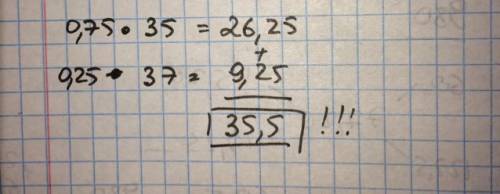 0,75 • 35 = 26,25
+
0,25 • 37 = 9,25
35,5 !!!